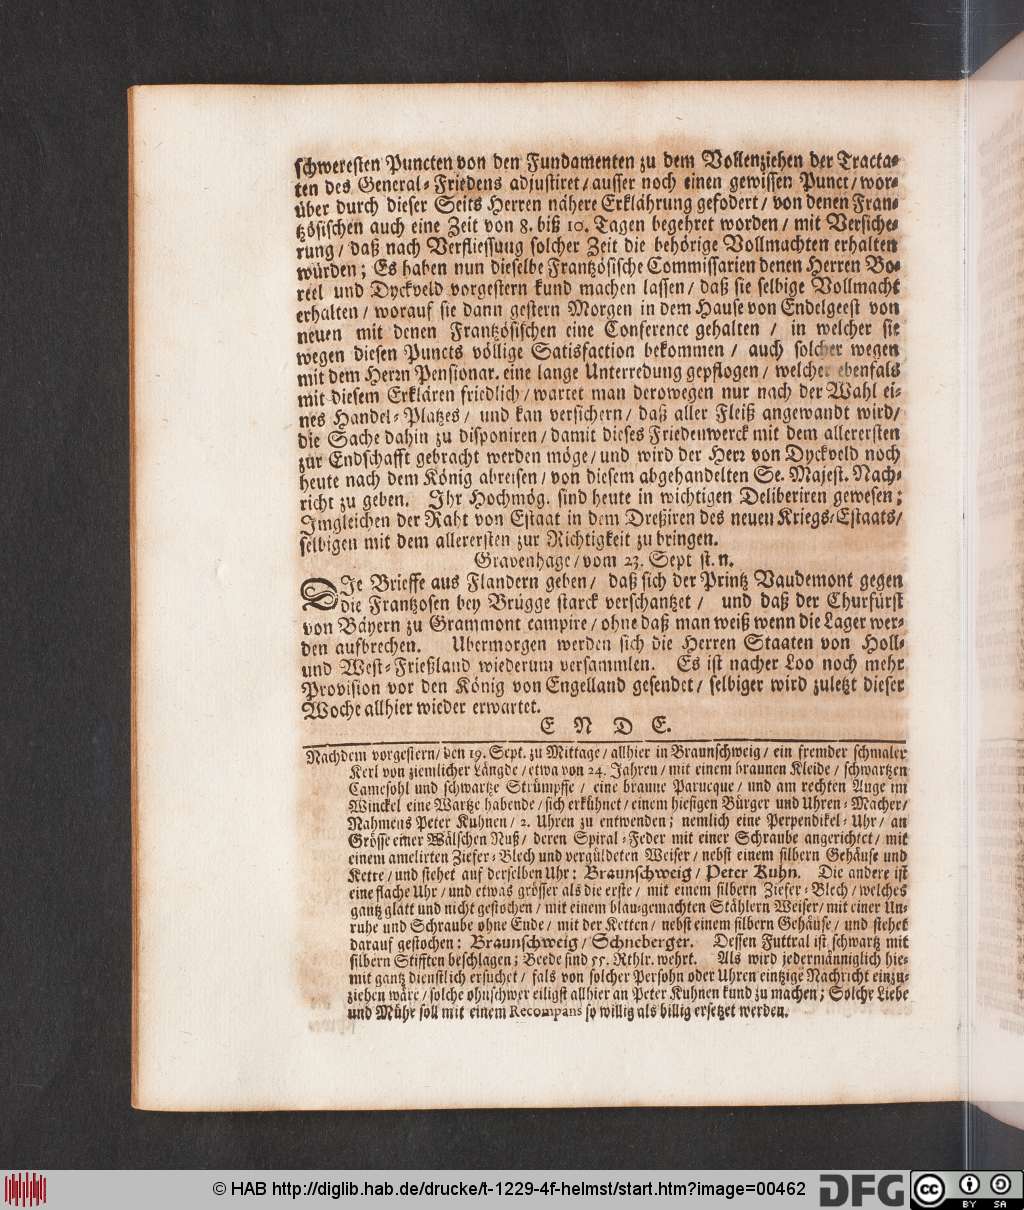 schweresten Puncten von den Fundamenten zu dem Vollenziehen der Tracta-
ten des General-Friedens adjustiret/ausser noch einen gewissen Punct/wor-
über durch dieser Seits Herren nähere Erklährung gefodert/von denen Fran-
tzösischen auch eine Zeit von 8. biß 10. Tagen begehret worden/mit Versiche-
rung/daß nach Verfliessung solcher Zeit die behörige Vollmachten erhalten
würden; Es haben nun dieselbe Frantzösische Commissarien denen Herren Bo-
reel und Dyckveld vorgestern kund machen lassen/daß sie selbige Vollmacht
erhalten/worauf sie dann gestern Morgen in dem Hause von Endelgeest von
neuen mit denen Frantzösischen eine Conference gehalten/ in welcher sie
wegen diesen Puncts völlige Satisfaction bekommen/ auch solcher wegen
mit dem Herrn Pensionar. eine lange Unterredung gepflogen/welcher ebenfals
mit diesem Erklären friedlich/wartet man derowegen nur nach der Wahl ei-
nes Handel-Platzes/ und kan versichern/daß aller Fleiß angewandt wird/
die Sache dahin zu disponiren/damit dieses Friedenwerck mit dem allerersten
zur Endschafft gebracht werden möge/und wird der Herr von Dyckveld noch
heute nach dem König abreisen/von diesem abgehandelten Se. Majest. Nach-
richt zu geben. Ihr Hochmög. sind heute in wichtigen Deliberiren gewesen;
Imgleichen der Raht von Estaat in dem Dreßiren des neuen Kriegs-Estaats/
selbigen mit dem allerersten zur Richtigkeit zu bringen.
Gravenhage/vom 23. Sept st. n.
DIe Brieffe aus Flandern geben/ daß sich der Printz Vaudemont gegen
die Frantzosen bey Brügge starck verschantzet/ und daß der Churfürst
von Bäyern zu Grammont campire/ohne daß man weiß wenn die Lager wer-
den aufbrechen. Ubermorgen werden sich die Herren Staaten von Holl-
und West-Frießland wiederum versammlen. Es ist nacher Loo noch mehr
Provision vor den König von Engelland gesendet/selbiger wird zuletzt dieser
Woche allhier wieder erwartet.
E N D E.
Nachdem vorgestern/den 19. Sept. zu Mittage/allhier in Braunschweig/ein fremder schmaler
Kerl von ziemlicher Längde/etwa von 24. Jahren/mit einem braunen Kleide/schwartzen
Camesohl und schwartze Strümpffe/ eine braune Parucque/und am rechten Auge im
Winckel eine Wartze habende/sich erkühnet/einem hiesigen Bürger und Uhren-Macher/
Nahmens Peter Kuhnen/2. Uhren zu entwenden; nemlich eine Perpendikel-Uhr/an
Grösse einer Wälschen Nuß/ deren Spiral-Feder mit einer Schraube angerichtet/mit
einem amelirten Ziefer-Blech und vergüldeten Weiser/nebst einem silbern Gehäuse und
Kette/und stehet auf derselben Uhr: Braunschweig/Peter Kuhn. Die andere ist
eine flache Uhr/und etwas grösser als die erste/mit einem silbern Ziefer-Blech/welches
gantz glatt und nicht gestochen/mit einem blau-gemachten Stählern Weiser/mit einer Un-
ruhe und Schraube ohne Ende/mit der Ketten/nebst einem silbern Gehäuse/und stehet
darauf gestochen: Braunschweig/Schneberger. Dessen Futtral ist schwartz mit
silbern Stifften beschlagen; Beede sind 55. Rthlr. wehrt. Als wird jedermänniglich hie-
mit gantz dienstlich ersuchet/fals von solcher Persohn oder Uhren eintzige Nachricht einzu-
ziehen wäre/solche ohnschwer eiligst allhier an Peter Kuhnen kund zu machen; Solche Liebe
und Mühe soll mit einem Recompans so willig als billig ersetzet werden.
© HAB http://diglib.hab.de/drucke/t-1229-4f-helmst/start.htm?image=00462
DFG
cc BY SA